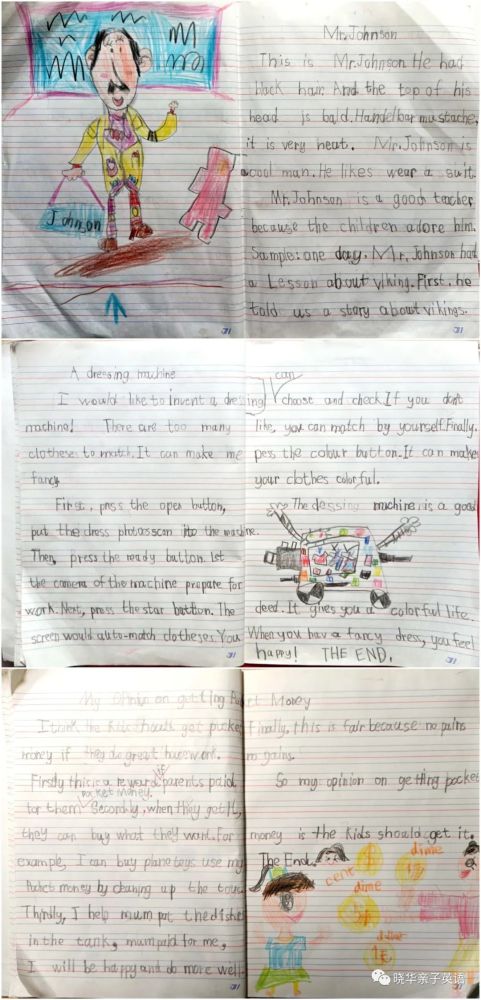 Johnson
Mr.Johnson
This is Mr.Johnson. He had
black hair. And the top of his
head is bald. Handelbar mustache,
it is very neat. Mr.Johnson is
cool man. He likes wear a suit.
Mr.Johnson is a good teacher
because the children adore him.
Sample: one day. Mr. Johnson had
a Lesson about viking. First. he
told us a story about vikings.
A dressing machine
I would like to invent a dressing
machine! There are too many
clotheses to match. It can make me
fancy.
First, press the open button,
put the dress photosscan into the machine.
Then, press the ready button. let
the camera of the machine prepare for
work. Next, press the star button. The
screen would auto-match clotheses. You
can
choose and check. If you don't
like, you can match by yourself. Finally.
pess the colour button. It can makes
your clothes colorful.
The dessing machine, is a good
deed. It gives you a colorful life.
When you have a fancy dress, you feel
happy! THE END.
My Opinion on getting Money
I think the kids should get pocket
money if they do great housework.
Firstly this is a reward parents paid
pocket money.
for them. Secondly, when they get it,
they can buy what they want. For
example, I can buy plane toys use my
money by cleaning up the
Thirdly, I help mum put the dishes
in the tank, mum paid for me,
I will be happy and do more well.
Finally, this is fair because no pains
no gains.
So my opinion on getting pocket
money is the kids should get it.
The End.
cent
dime
dime
dime
晓华亲子英语